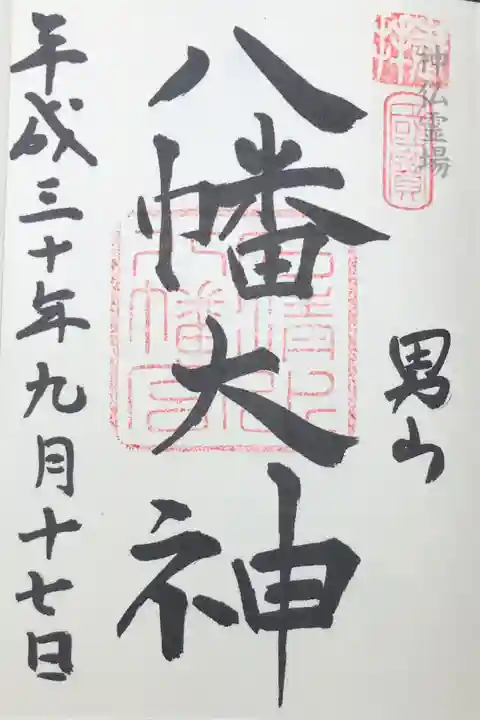 神仏霊場
国寳
男山
八幡大神
石清水
八幡宮
平成三十年九月十七日